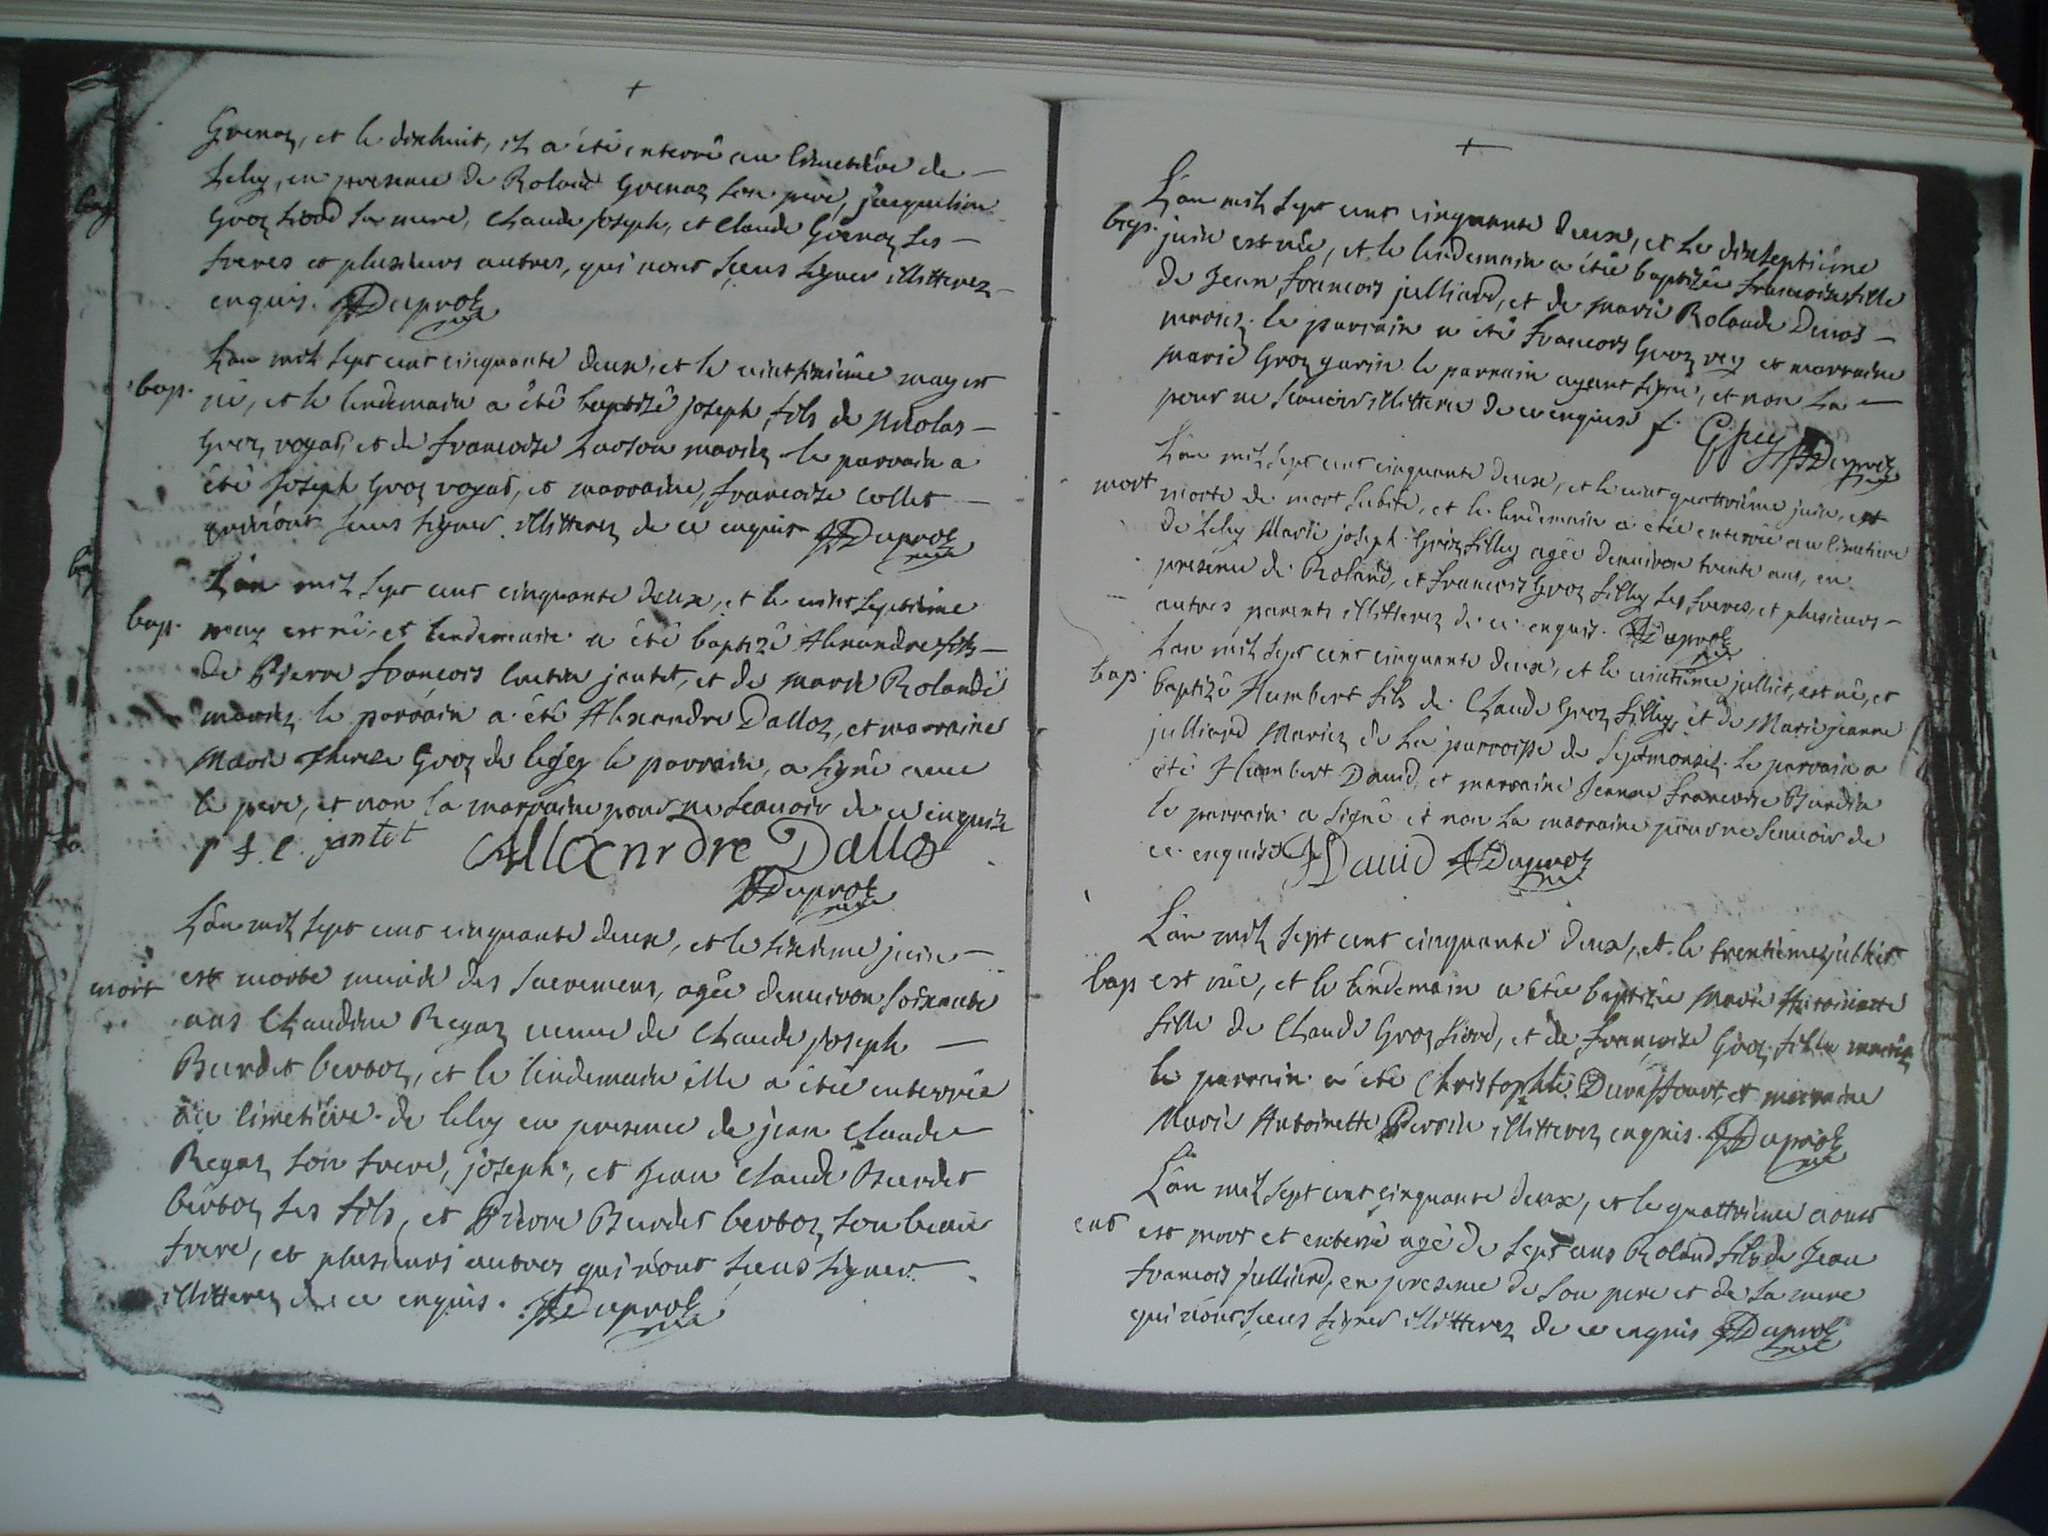 +
Grenoz, et le dixhuit, il a été enterré au cimetiére de
Lelex, en presence de Roland Grenoz son pere, jacqueline
Groz fiord sa mere, Claude joseph, et Claude Grenoz ses
freres et plusieurs autres, qui n'ont sceus signer illitterez
enquis. Duproz
L'an mil sept cent cinquante deux, et le vint sixiéme may est
bap. né, et le lendemain a été baptizé joseph, fils de Nicolas
Groz, voyat, et de francoise mariez le parrain a
été joseph Groz voyat, et marraine, francoise collet
qui n'ont sceus signer illitterez de ce enquis Duproz
L'an mil sept cent cinquante deux, et le vint septiéme
bap. may est né, et lendemain a été baptizé Alexandre fils
de Pierre francois jantet, et de marie Rolande
mariez le parrain a été Alexandre Dalloz, et marraine
Marie therese Groz de le parrain, a signé avec
le pere, et non la marraine pour ne scauoir de ce enquise
p f. c. jantet Allexnrdre Dalloz
Duproz
L'an mil sept cent cinquante deux, et le sixiéme juin
mort est morte munie des sacremens, agée d'enuiron soixante
ans Claudine Regaz veuue de Claude joseph
Burdet bertoz, et le lendemain elle a étée enterrée
au cimetiére de Lelex en presence de jean Claude
Regaz son frere, joseph, et Jean Claude Burdet
bertoz ses fils, et Pierre Burdet bertoz, son beau
frere, et plusieurs autres qui n'ont sceus signer
illitterez de ce enquis. Duproz
+
L'an mil sept cent cinquante deux, et le dixseptiéme
bap. juin est née, et le lendemain a étée baptizée francoise fille
de Jean francois julliard, et de marie Rolande
mariez. le parrain a été francois Groz et marraine
marie Groz le parrain ayant signé, et non la
pour ne scauoir illitteree de ce enquise f. Duproz
L'an mil sept cent cinquante deux, et le vint quattriéme juin, est
mort morte de mort subite, et le lendemain a étée enterrée au cimetiere
de Lelex Marie joseph Groz filley agée denuiron trente ans, en
presence de Roland, et francois Groz filley ses freres, et plusieurs
autres parents illitterez de ce enquis. Duproz
L'an mil sept cent cinquante deux, et le julliet, est né, et
bap. baptizé Humbert fils de Claude Groz filley, et de Marie jeanne
julliard Mariez de La parroisse de Septmoncel. Le parrain a
été Humbert David, et marraine Jeanne francoise Burdin
le parrain a signé et non La marraine pour ne scauoir de
ce enquise HDauid Duproz
L'an mil sept cent cinquante deux, et le trentiéme julliet
bap est née, et le lendemain a étée baptizée Marie Antoinette
fille de Claude Groz fiord, et de françoise Groz fille mariez
le parrain a été Christophle et marraine
Marie Antoinette Perrin illitterez enquis. Duproz
L'an mil sept cent cinquante deux, et le quattriéme aoust
ent est mort et enterré agé de sept ans Roland fils de Jean
francois julliard, en presence de son pere et de sa mere
qui n'ont sceus signer illitterez de ce enquis Duproz